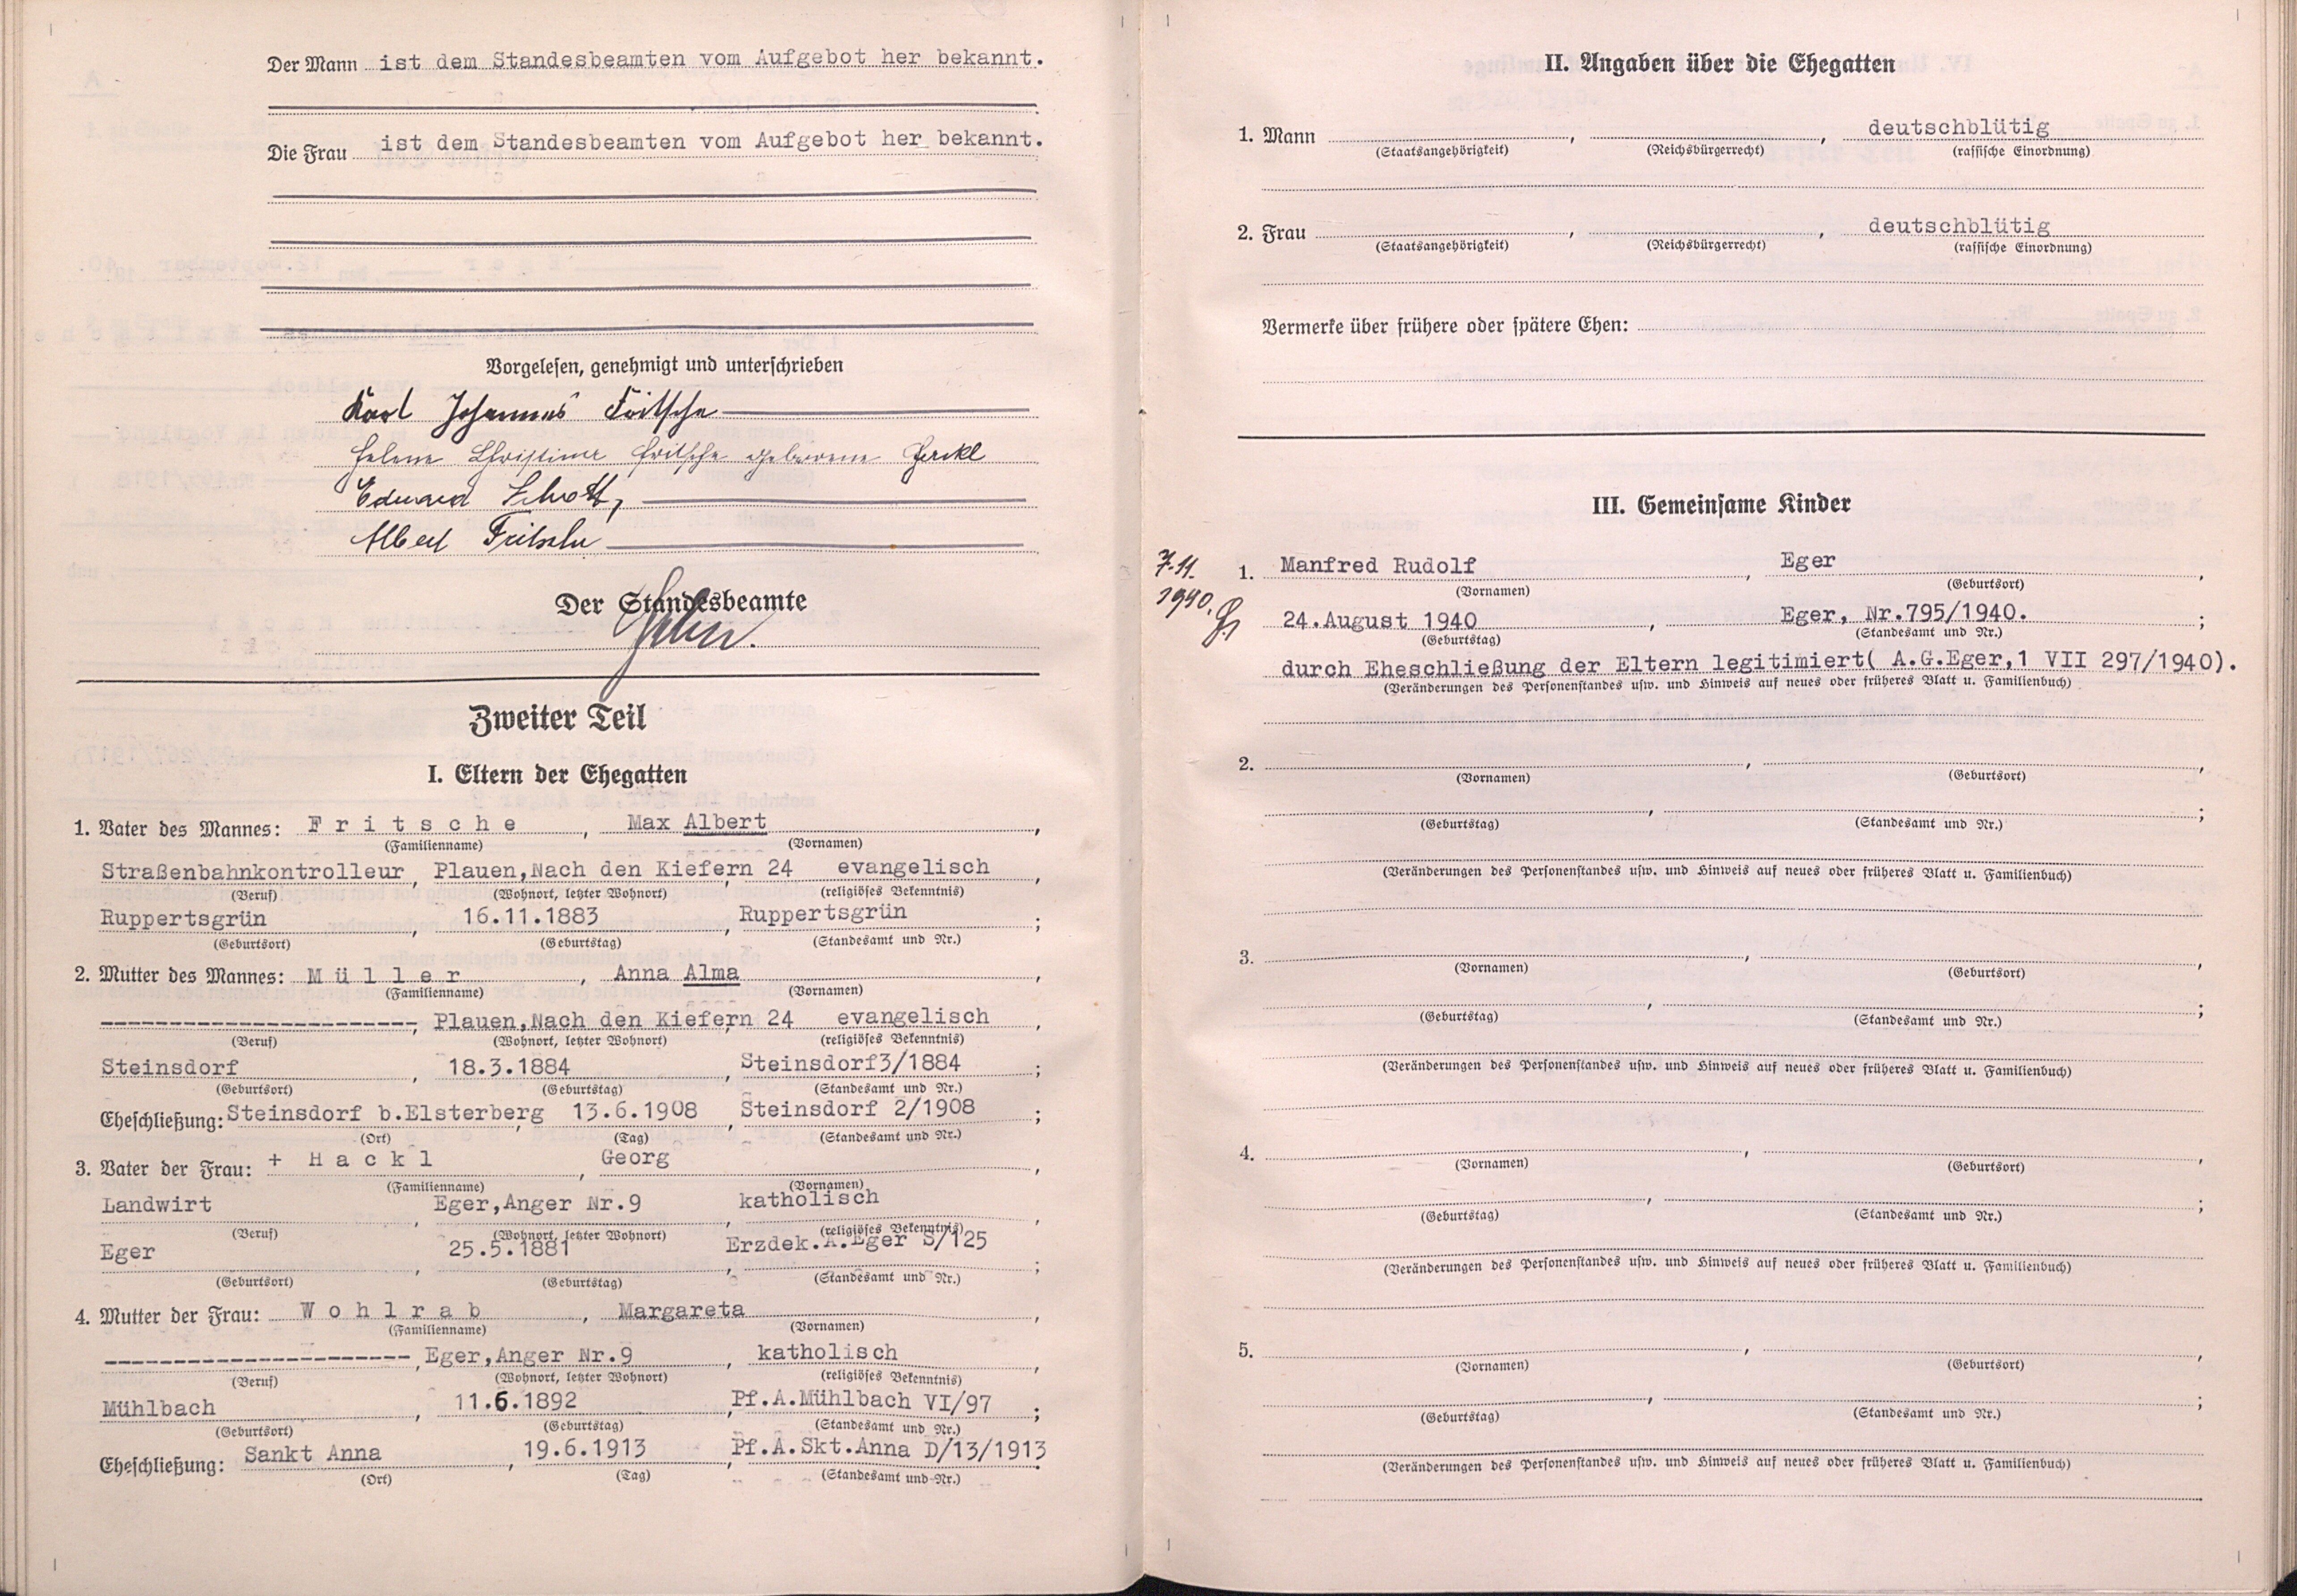 Der Mann ist dem Standesbeamten vom Aufgebot her bekannt.
Die Frau ist dem Standesbeamten vom Aufgebot her bekannt.
Vorgelesen, genehmigt und unterschrieben
Karl Johannes Fritsche
Helene Christine Fritsche geborene Hackl
Eduard Schott,
Albert Fritsche
Der Standesbeamte
Zweiter Teil
I. Eltern der Ehegatten
1. Vater des Mannes: F r i t s c h e , Max Albert ,
(Familienname) (Vornamen)
Straßenbahnkontrolleur, Plauen,Nach den Kiefern 24, evangelisch ,
(Beruf) (Wohnort, letzter Wohnort) (religiöses Bekenntnis)
Ruppertsgrün , 16.11.1883 , Ruppertsgrün ;
(Geburtsort) (Geburtstag) (Standesamt und Nr.)
2. Mutter des Mannes: M ü l l e r , Anna Alma ,
(Familienname) (Vornamen)
-----------------------, Plauen,Nach den Kiefern 24, evangelisch ,
(Beruf) (Wohnort, letzter Wohnort) (religiöses Bekenntnis)
Steinsdorf , 18.3.1884 , Steinsdorf3/1884 ;
(Geburtsort) (Geburtstag) (Standesamt und Nr.)
Eheschließung: Steinsdorf b.Elsterberg, 13.6.1908 , Steinsdorf 2/1908 ;
(Ort) (Tag) (Standesamt und Nr.)
3. Vater der Frau: + H a c k l , Georg ,
(Familienname) (Vornamen)
Landwirt , Eger,Anger Nr.9 , katholisch ,
(Beruf) (Wohnort, letzter Wohnort) (religiöses Bekenntnis)
Eger , 25.5.1881 , Erzdek.A.Eger S/125 ;
(Geburtsort) (Geburtstag) (Standesamt und Nr.)
4. Mutter der Frau: W o h l r a b , Margareta ,
(Familienname) (Vornamen)
----------------------, Eger,Anger Nr.9 , katholisch ,
(Beruf) (Wohnort, letzter Wohnort) (religiöses Bekenntnis)
Mühlbach , 11.6.1892 , Pf.A.Mühlbach VI/97 ;
(Geburtsort) (Geburtstag) (Standesamt und Nr.)
Eheschließung: Sankt Anna , 19.6.1913 , Pf.A.Skt.Anna D/13/1913.
(Ort) (Tag) (Standesamt und Nr.)
II. Angaben über die Ehegatten
1. Mann , , deutschblütig
(Staatsangehörigkeit) (Reichsbürgerrecht) (rassische Einordnung)
2. Frau , , deutschblütig
(Staatsangehörigkeit) (Reichsbürgerrecht) (rassische Einordnung)
Vermerke über frühere oder spätere Ehen:
III. Gemeinsame Kinder
7.11.
1940.
1. Manfred Rudolf , Eger ,
(Vornamen) (Geburtsort)
24.August 1940 , Eger, Nr.795/1940. ;
(Geburtstag) (Standesamt und Nr.)
durch Eheschließung der Eltern legitimiert( A.G.Eger,1 VII 297/1940).
(Veränderungen des Personenstandes usw. und Hinweis auf neues oder früheres Blatt u. Familienbuch)
2. , ,
(Vornamen) (Geburtsort)
, ;
(Geburtstag) (Standesamt und Nr.)
(Veränderungen des Personenstandes usw. und Hinweis auf neues oder früheres Blatt u. Familienbuch)
3. , ,
(Vornamen) (Geburtsort)
, ;
(Geburtstag) (Standesamt und Nr.)
(Veränderungen des Personenstandes usw. und Hinweis auf neues oder früheres Blatt u. Familienbuch)
4. , ,
(Vornamen) (Geburtsort)
, ;
(Geburtstag) (Standesamt und Nr.)
(Veränderungen des Personenstandes usw. und Hinweis auf neues oder früheres Blatt u. Familienbuch)
5. , ,
(Vornamen) (Geburtsort)
, ;
(Geburtstag) (Standesamt und Nr.)
(Veränderungen des Personenstandes usw. und Hinweis auf neues oder früheres Blatt u. Familienbuch)